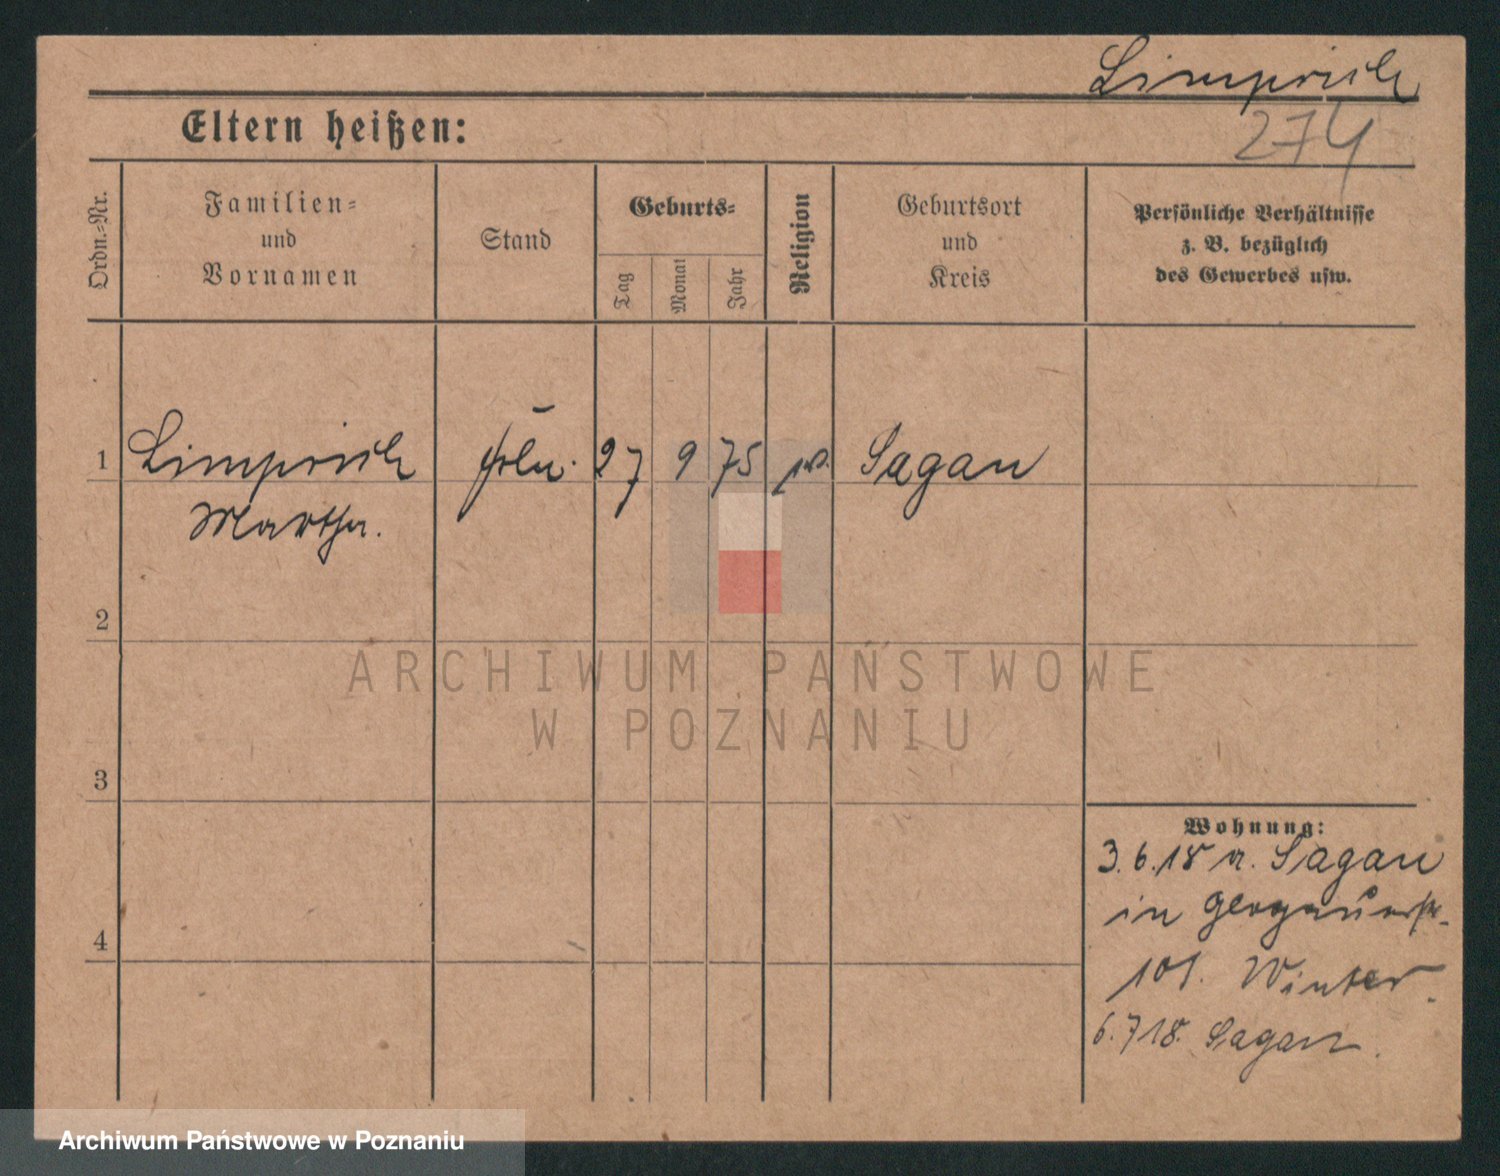 Limprich
274
Eltern heißen:
Ordn.-Nr.
Familien-
und
Vornamen
Stand
Geburts-
Tag
Monat
Jahr
Religion
Geburtsort
und
Kreis
Persönliche Verhältnisse
z. B. bezüglich
des Gewerbes usw.
1 Limprich 27 9 75 Sagan
Martha.
2
3
4
Wohnung:
3.6.18 a. Sagan
in
101. Winter.
6.718. Sagan.
ARCHIWUM PAŃSTWOWE
W POZNANIU
Archiwum Państwowe w Poznaniu